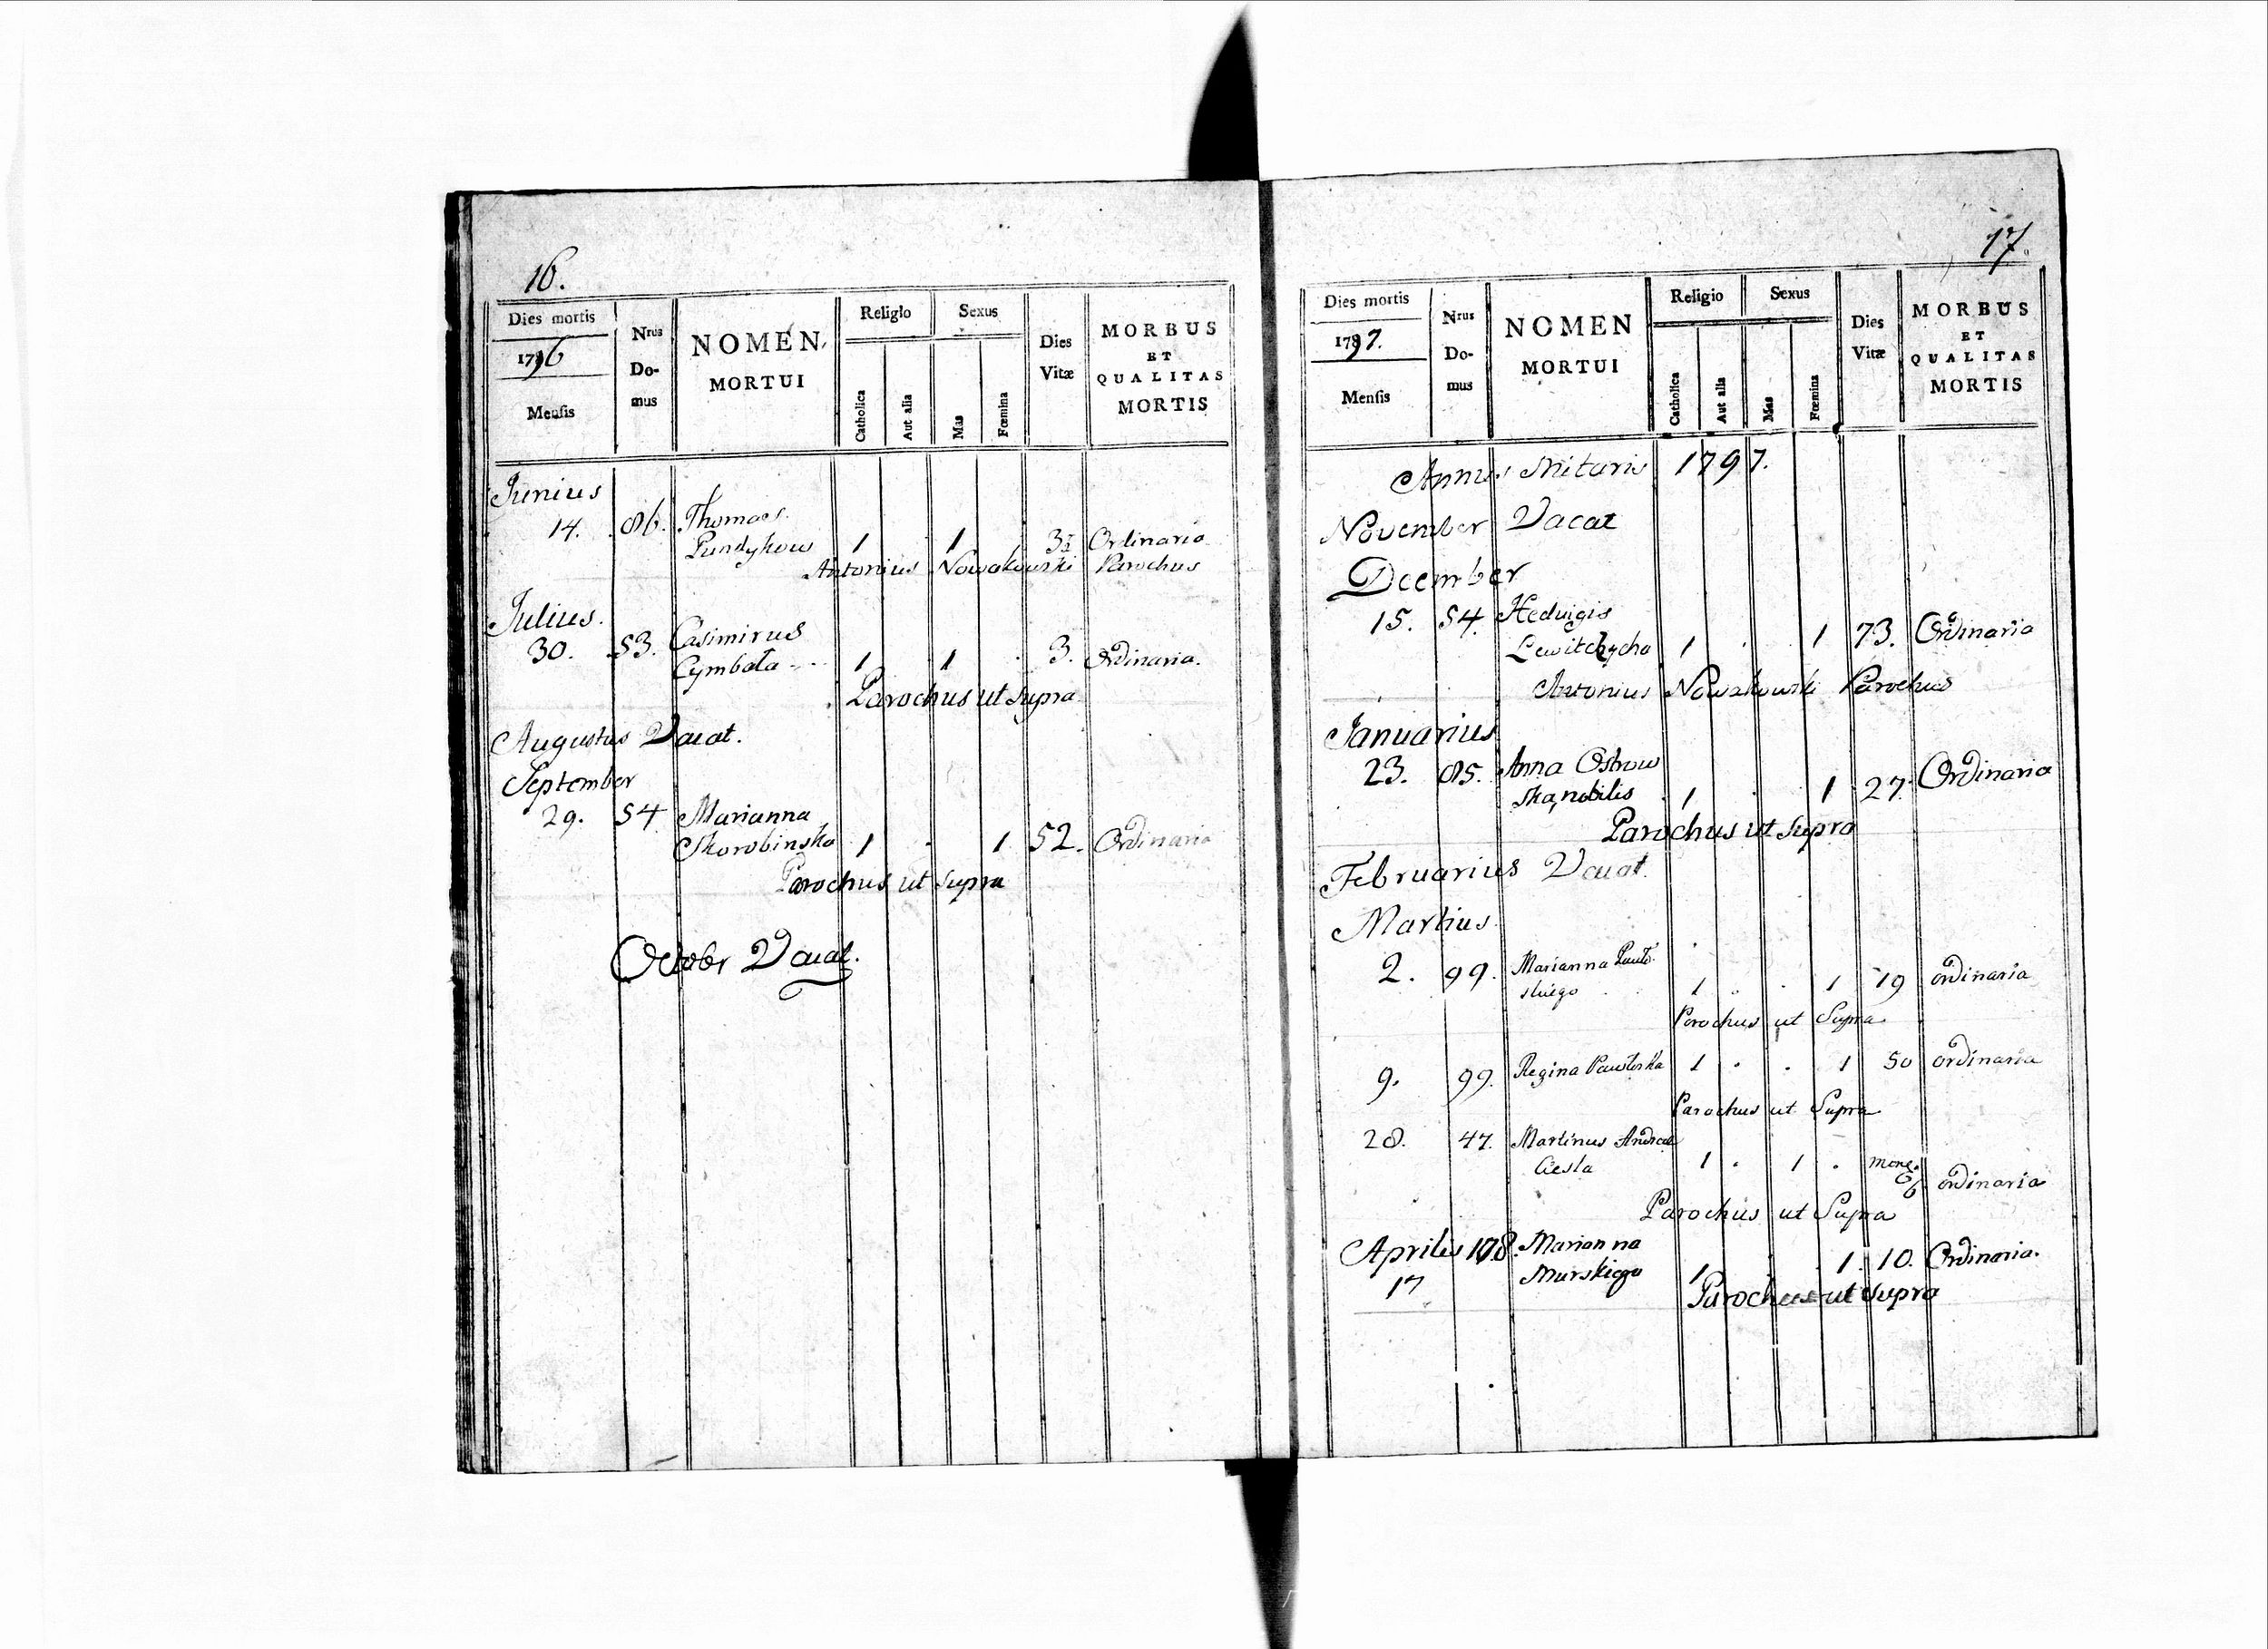 16.
Dies mortis
1796
Mensis
Nrus
Do-
mus
NOMEN
MORTUI
Religio
Catholica
Aut alia
Sexus
Mas
Fœmina
Dies
Vitæ
MORBUS
ET
QUALITAS
MORTIS
Junius
14. 86. Thomas
1 1 Ordinaria
Antonius Nowakowski Parochus
Julius.
30. 53. Casimirus
Cymbała 1 1 3. Ordinaria.
Parochus ut supra
Augustus Vacat.
September
29. 54 Marianna
Skorobinska 1 1 52. Ordinaria
Parochus ut supra
Octobr Vacat.
17.
Dies mortis
1797.
Mensis
Nrus
Do-
mus
NOMEN
MORTUI
Religio
Catholica
Aut alia
Sexus
Mas
Fœmina
Dies
Vitæ
MORBUS
ET
QUALITAS
MORTIS
Annus Militaris 1797.
November Vacat
December
15. 54. Hedvigis
1 1 73. Ordinaria
Antonius Nowakowski Parochus
Januarius
23. 85. Anna Ostrow
ska, nobilis 1 1 27. Ordinaria
Parochus ut supra
Februarius Vacat.
Martius
2. 99. Marianna
1 1 19 ordinaria
Parochus ut Supra
9. 99. Regina Pawloska 1 1 50 ordinaria
Parochus ut Supra
28. 47. Martinus Andreae
Ciesla 1 1 6 ordinaria
Parochus ut Supra
Aprilis 108. Marianna
17 Murskiego 1 1 10. Ordinaria.
Parochus ut supra